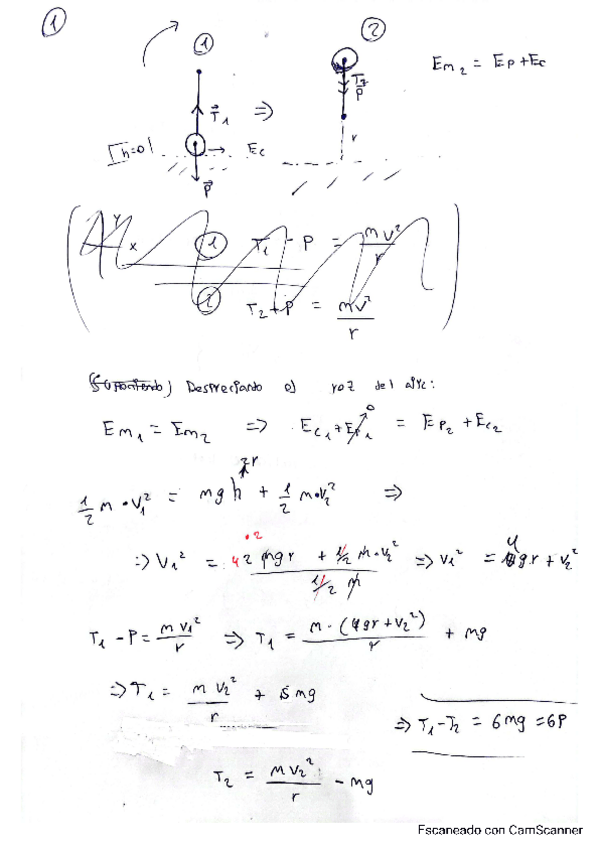 ①
① ② Em₂ = Ep + Ec
T⃗₁ ⇒ T₂ P r
h=0 Ec
P⃗
y x ① T₁ - P = mv²/r
② T₂ + P = mv²/r
(Suponiendo) Despreciando el roz del aire:
Em₁ = Em₂ ⇒ Ec₁ + Ep₁ 0 = Ep₂ + Ec₂
1/2 m·v₁² = mg h 2r + 1/2 m·v₂² ⇒
⇒ v₁² = (2 mgr ·2 + 1/2 m·v₂²)/(1/2 m) ⇒ v₁² = 4gr + v₂²
T₁ - P = mv₁²/r ⇒ T₁ = m·(4gr + v₂²)/r + mg
⇒ T₁ = mv₂²/r + 5mg
⇒ T₁ - T₂ = 6mg = 6P
T₂ = mv₂²/r - mg
Escaneado con CamScanner